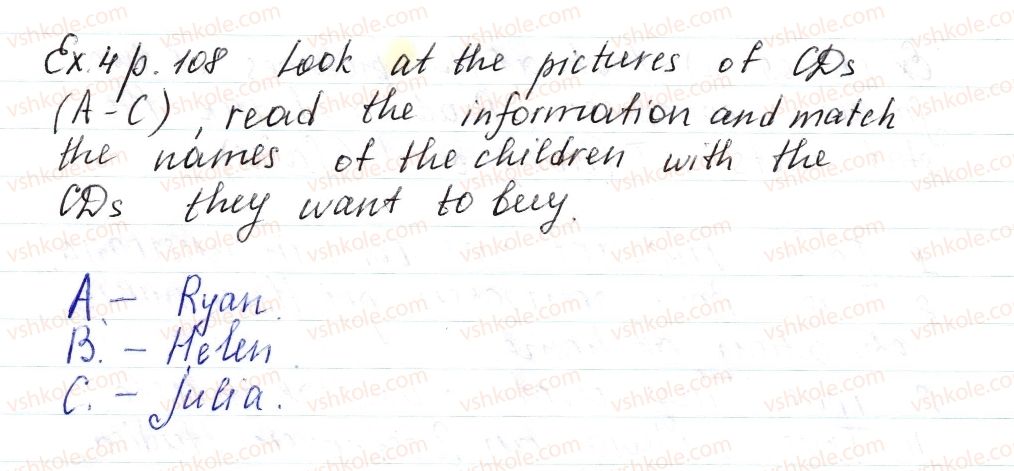 Ex. 4 p. 108 Look at the pictures of CDs
(A-C), read the information and match
the names of the children with the
CDs they want to buy.
A. - Ryan.
B. - Helen
C. - Julia.